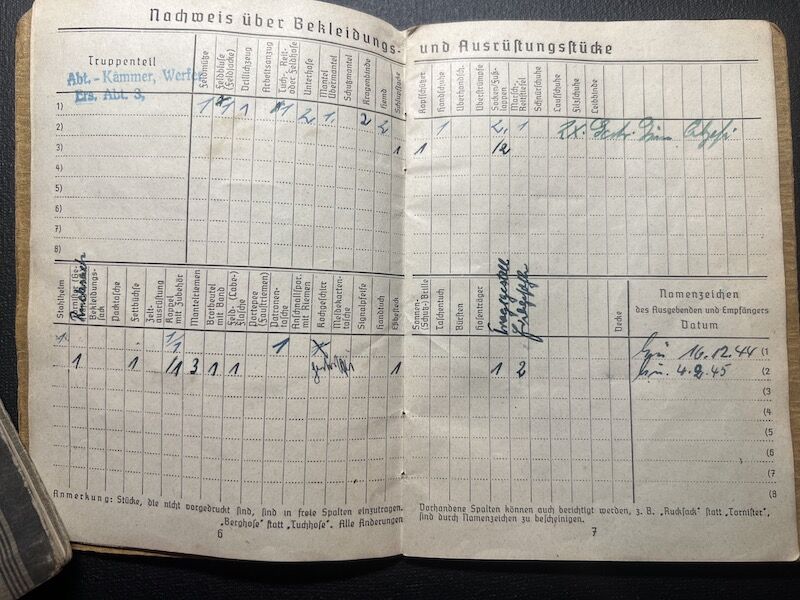 Nachweis über Bekleidungs- und Ausrüstungsstücke
Truppenteil
Abt.-Kammer, Werfer
Ers. Abt. 3,
Feldmütze
Feldbluse (Feldjacke)
Drillichzeug
Arbeitsanzug
Tuch-, Reit- oder Feldhose
Unterhose
Mantel
Übermantel
Schutzmantel
Kragenbinde
Hemd
Kopfschützer
Handschuhe
Überhandsch.
Überstrümpfe
Socken/Fußlappen
Marsch-, Reitstiefel
Schnürschuhe
Laufschuhe
Filzschuhe
Leibbinde
1) 1 1 1 1 2 1 2 2 1 2 1
2)
3) 1 1 2
4)
5)
6)
7)
8)
Stahlhelm
Bekleidungssack
Packtasche
Zeltbüchse
Zeltausrüstung
Koppel mit Zubehör
Mantelriemen
Brotbeutel mit Band
Feld- (Labe-) Flasche
Portepee (Faustriemen)
Patronentasche
Anschnallspor. mit Riemen
Kochgeschirr
Meldekartentasche
Signalpfeife
Handtuch
Eßbesteck
Sonnen- (Schutz-) Brille
Taschentuch
Bürsten
Hosenträger
Decke
Namenzeichen
des Ausgebenden und Empfängers
Datum
16.12.44 (1
1 1 1 1 3 1 1 1 1 2 4.2.45 (2
(3
(4
(5
(6
(7
(8
Anmerkung: Stücke, die nicht vorgedruckt sind, sind in freie Spalten einzutragen.
„Berghose" statt „Tuchhose". Alle Änderungen
6
Vorhandene Spalten können auch berichtigt werden, z. B. „Rucksack" statt „Tornister",
sind durch Namenzeichen zu bescheinigen.
7